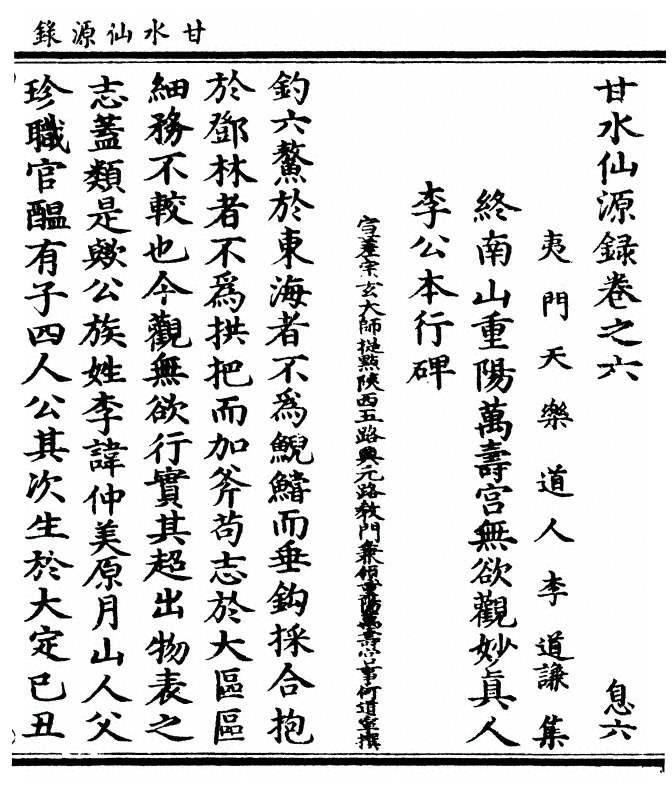 甘水仙源錄
甘水仙源録卷之六　息六
夷門天樂道人李道謙集
終南山重陽萬壽宫無欲觀妙真人
李公本行碑
宣差宗玄大師提㸃陝西五路興元路教門兼領重陽萬壽宫事何道寧撰
釣六鰲於東海者不爲鯢鰌而垂鈎採合抱
於鄧林者不爲拱把而加斧苟志於大區區
細務不較也今觀無欲行實其超出物表之
志蓋類是歟公族姓李諱仲美原月山人父
珍職官醖有子四人公其次生於大定己丑